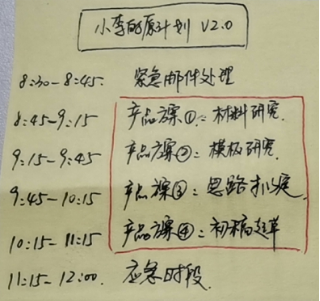 小李的原计划 V2.0
8:30-8:45. 紧急邮件处理
8:45-9:15 产品方案①: 材料研究.
9:15-9:45 产品方案②: 模板研究.
9:45-10:15 产品方案③: 思路扩展.
10:15-11:15 产品方案④: 初稿起草
11:15-12:00. 应急时段.